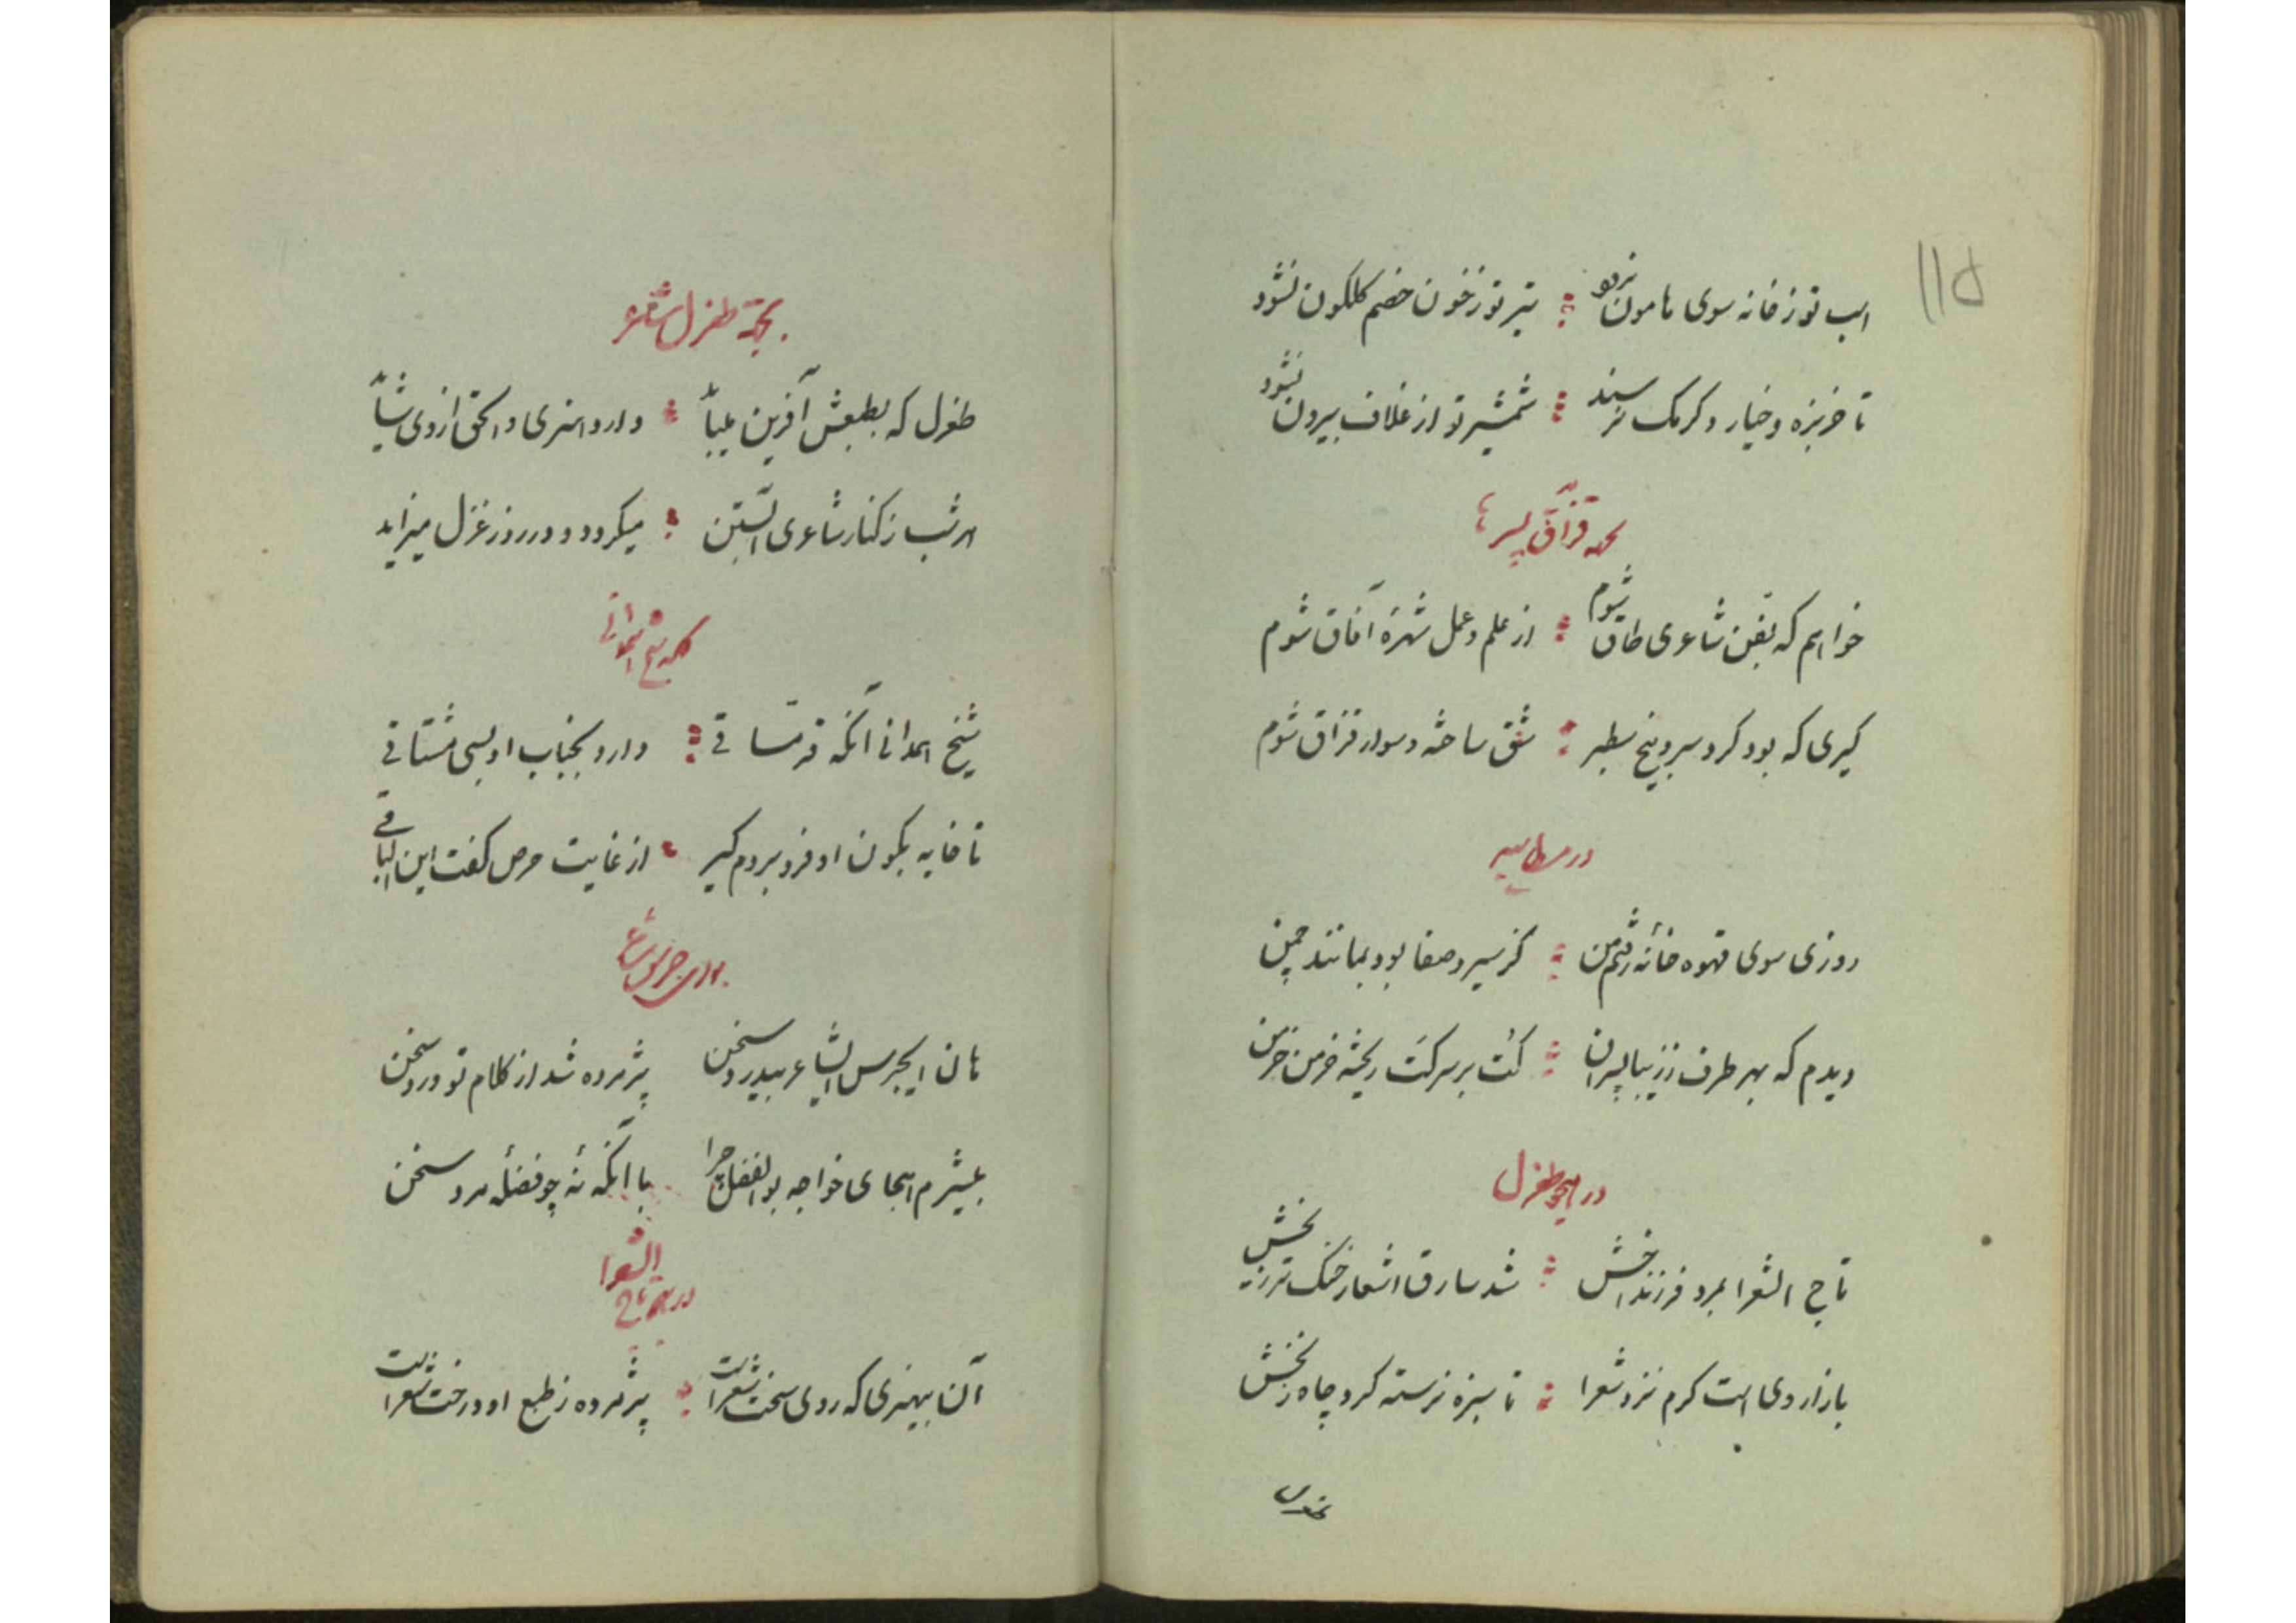 ۱۱۵
اسب تو ز خانه سوی هامون نرود تیر تو ز خون خصم گلگون نشود
تا خربزه و خیار و کرمک نرسند شمشیر تو از غلاف بیرون نشود
قزاق پسر
خواهم که بفن شاعری طاق شوم از علم و عمل شهرهٔ آفاق شوم
کیری که بود گرد سر و بیخ سطبر شق ساخته و سوار قزاق شوم
در مطایبه
روزی سوی قهوه خانه رفتم من کز سیر و صفا بود بمانند چمن
دیدم که بهر طرف ز زیبا پسران کت بر سر کت ریخته خرمن خرمن
در هجو طغرل
تاج الشعرا بمرد و فرزند اخش شد سارق اشعار خنک تر زیخش
بازار وی است گرم نزد شعرا تا سبزه نرسته گرد چاه زنخش
بجهة طغرل شاعر
طغرل که بطبعش آفرین میباید دارد هنری والحق از وی شاید
هر شب ز کنار شاعری آبستن میگردد و در روز غزل میزاید
شیخ همدانی
شیخ همدانی آنکه قرمساقی دارد بجناب او بسی مشتاقی
تا خایه بکون او فرو بردم کیر از غایت حرص گفت این الباقی
هان ای جرس ای شاعر بیدرد سخن پژمرده شد از کلام تو ورد سخن
بیشرم هجای خواجه بوالفضل چرا با آنکه نهٔ چو فضلهٔ مرد سخن
در هجو تاج الشعرا
آن بیهنری که روی سخت شعراست پژمرده ز طبع او درخت شعراست